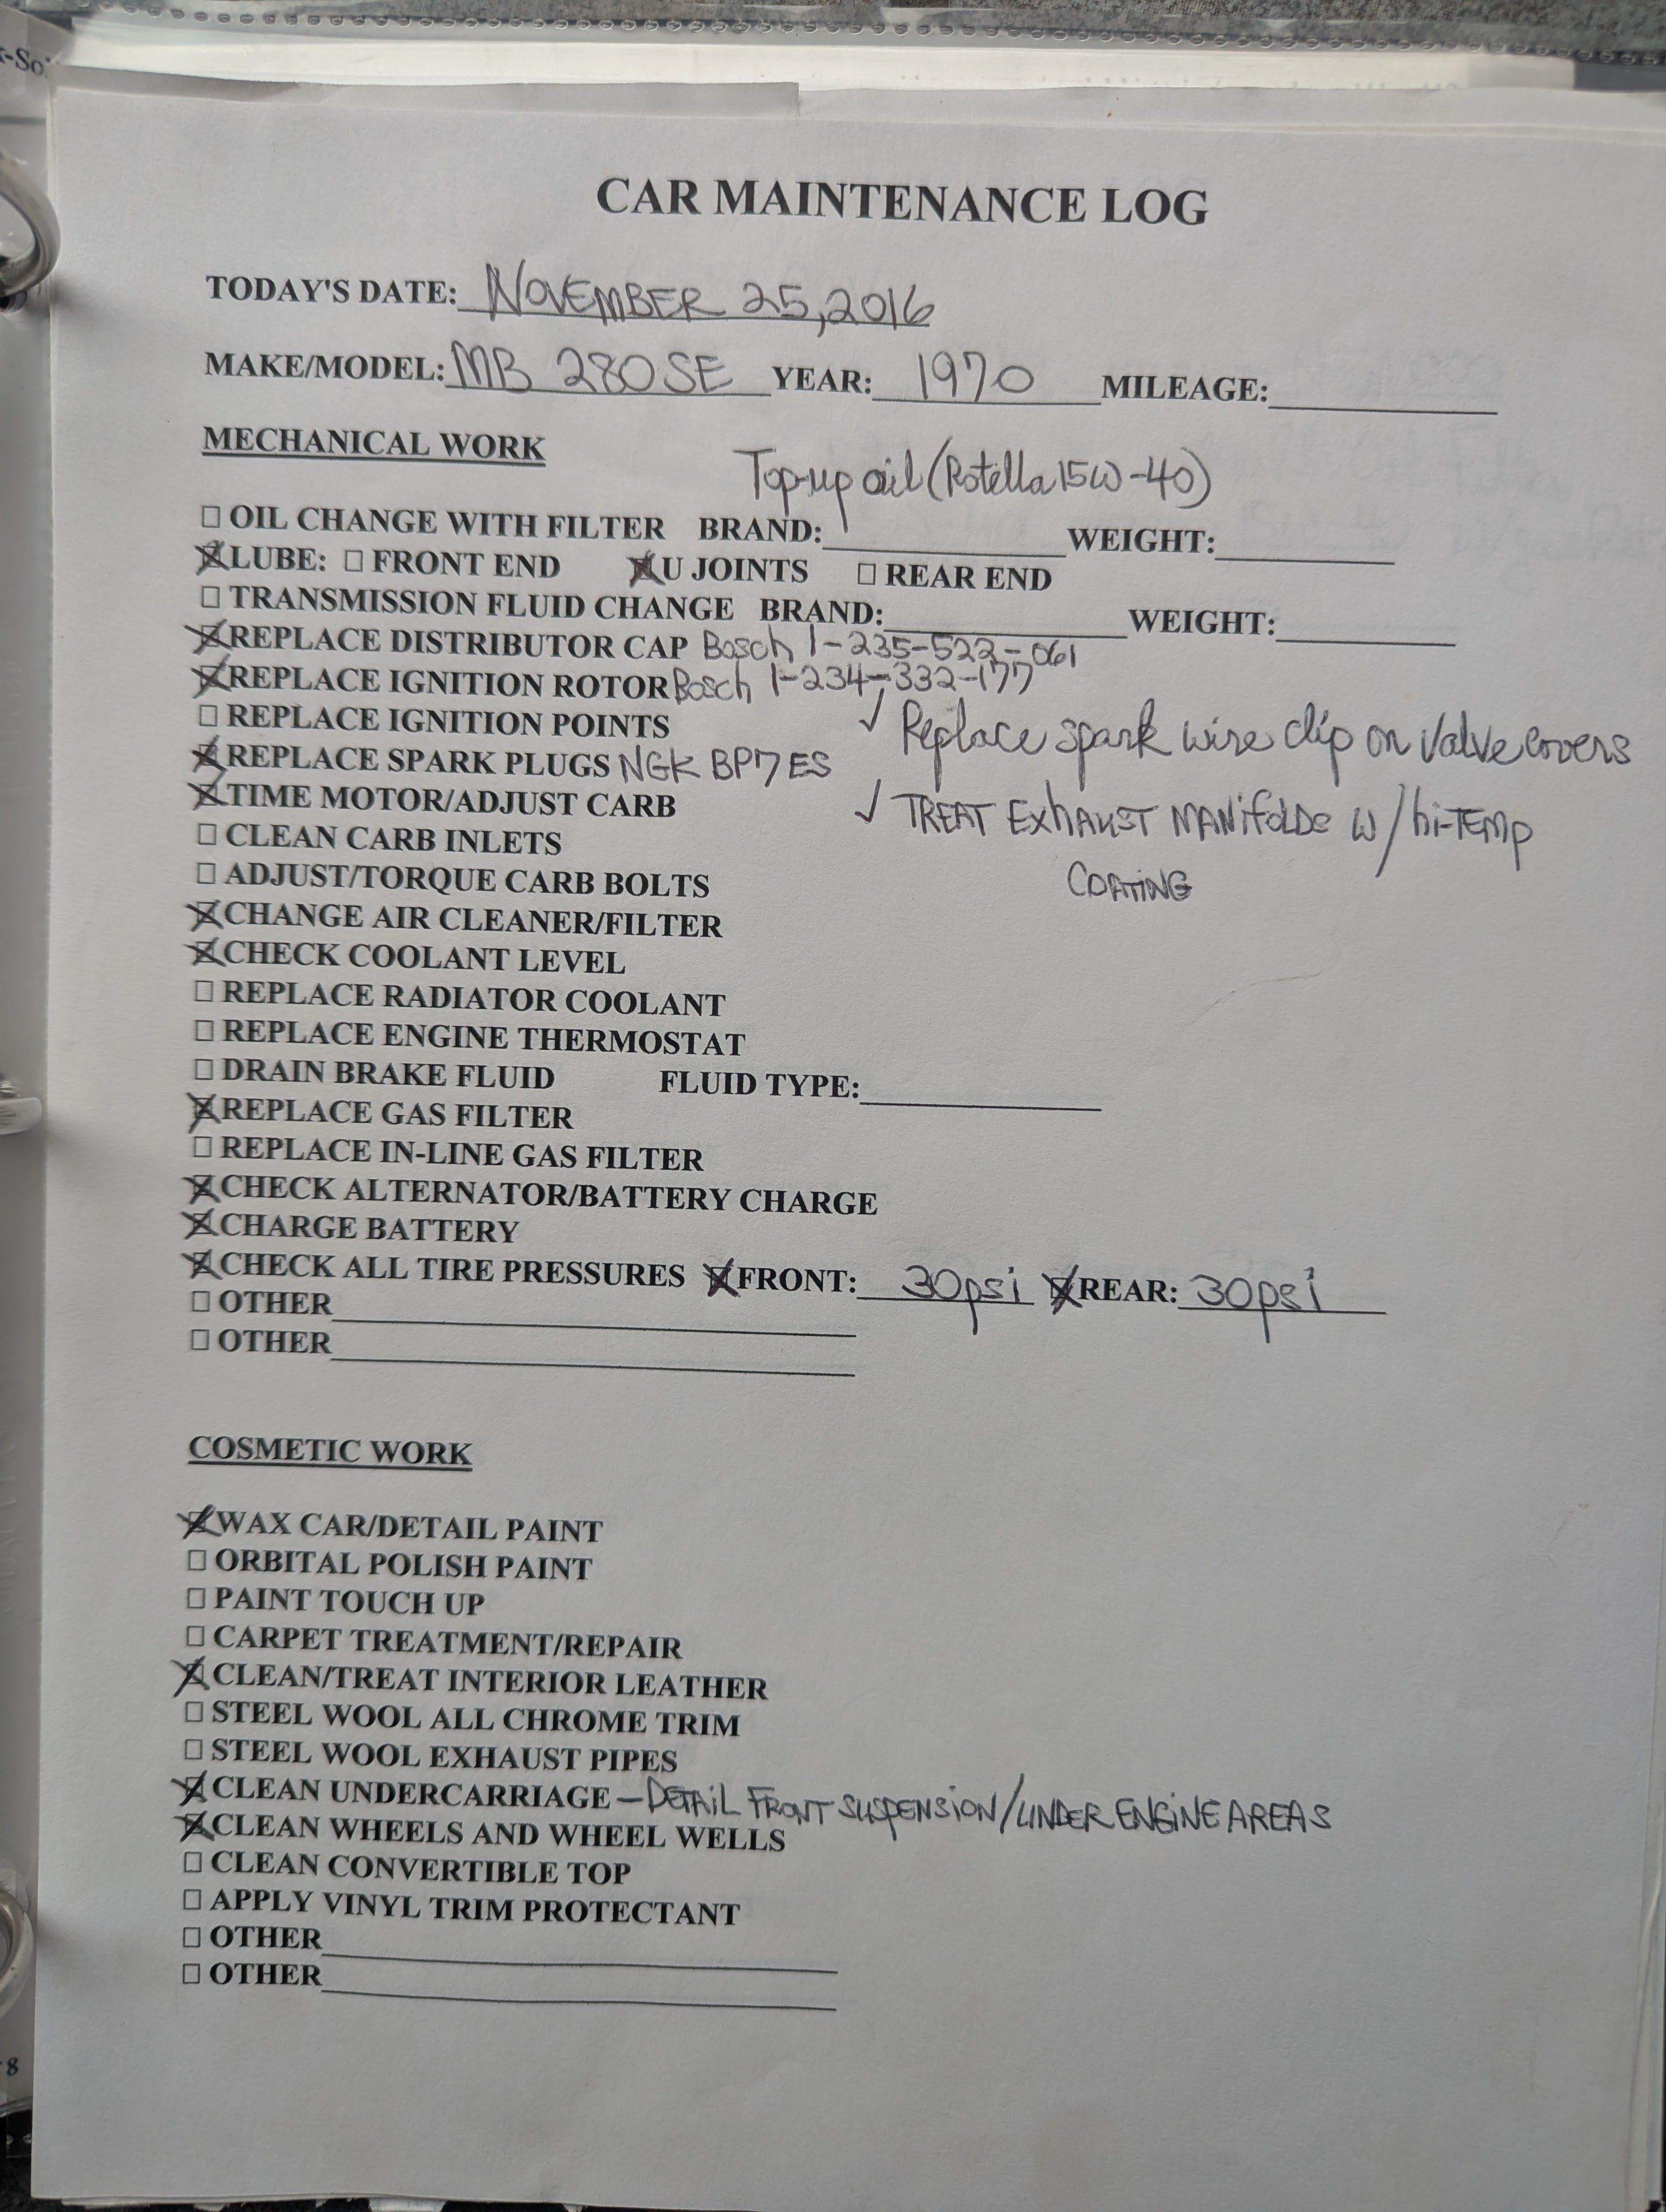 r-So
CAR MAINTENANCE LOG
TODAY'S DATE: NOVEMBER 25, 2016
MAKE/MODEL: MB 280SE YEAR: 1970 MILEAGE:
MECHANICAL WORK
Top-up oil (Rotella 15W-40)
☐ OIL CHANGE WITH FILTER BRAND: WEIGHT:
☒ LUBE: ☐ FRONT END ☒ U JOINTS ☐ REAR END
☐ TRANSMISSION FLUID CHANGE BRAND: WEIGHT:
☒ REPLACE DISTRIBUTOR CAP Bosch 1-235-522-061
☒ REPLACE IGNITION ROTOR Bosch 1-234-332-177
☐ REPLACE IGNITION POINTS ✓ Replace spark wire clip on valve covers
☒ REPLACE SPARK PLUGS NGK BP7ES
☒ TIME MOTOR/ADJUST CARB ✓ TREAT EXHAUST MANIFOLDS W/ hi-TEMP
☐ CLEAN CARB INLETS
☐ ADJUST/TORQUE CARB BOLTS COATING
☒ CHANGE AIR CLEANER/FILTER
☒ CHECK COOLANT LEVEL
☐ REPLACE RADIATOR COOLANT
☐ REPLACE ENGINE THERMOSTAT
☐ DRAIN BRAKE FLUID FLUID TYPE:
☒ REPLACE GAS FILTER
☐ REPLACE IN-LINE GAS FILTER
☒ CHECK ALTERNATOR/BATTERY CHARGE
☒ CHARGE BATTERY
☒ CHECK ALL TIRE PRESSURES ☒ FRONT: 30psi ☒ REAR: 30psi
☐ OTHER
☐ OTHER
COSMETIC WORK
☒ WAX CAR/DETAIL PAINT
☐ ORBITAL POLISH PAINT
☐ PAINT TOUCH UP
☐ CARPET TREATMENT/REPAIR
☒ CLEAN/TREAT INTERIOR LEATHER
☐ STEEL WOOL ALL CHROME TRIM
☐ STEEL WOOL EXHAUST PIPES
☒ CLEAN UNDERCARRIAGE – DETAIL FRONT SUSPENSION/UNDER ENGINE AREAS
☒ CLEAN WHEELS AND WHEEL WELLS
☐ CLEAN CONVERTIBLE TOP
☐ APPLY VINYL TRIM PROTECTANT
☐ OTHER
☐ OTHER
8